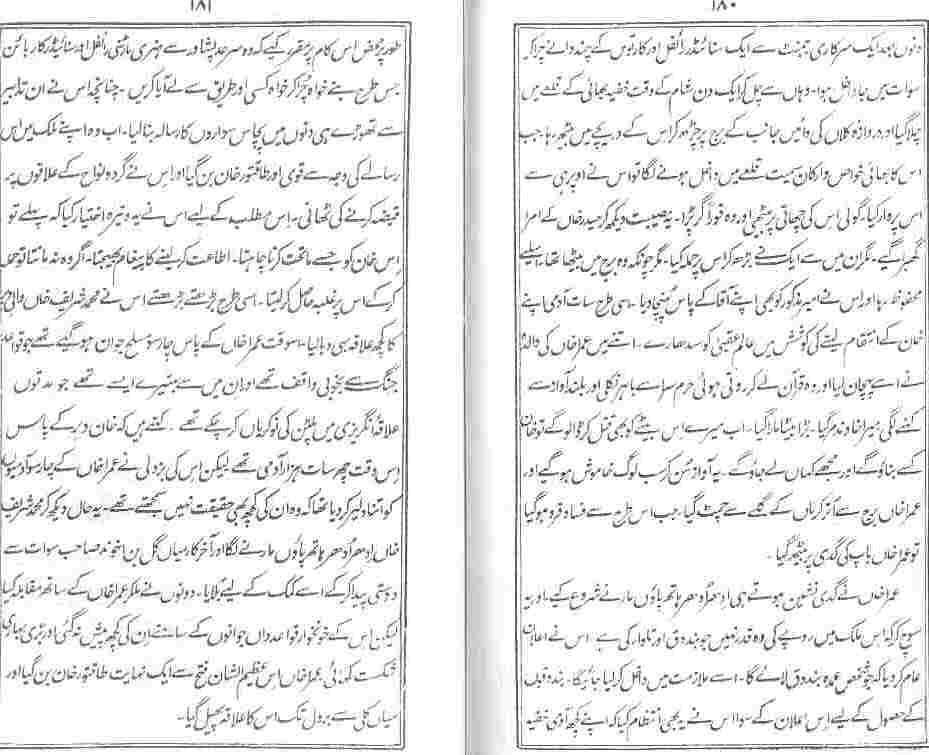 ۱۸۰
دنوں بعد ایک سرکاری رجمنٹ سے ایک سنائڈر رائفل اور کارتوس کے چند دانے چرا کر
سوات میں جا داخل ہوا۔ وہاں سے چل کر ایک دن شام کے وقت خفیہ بھائی کے قلعے میں
چلا گیا اور دروازہ کلاں کی دائیں جانب کے برج پر چڑھ کر اس کے دریچے میں بیٹھ رہا۔ جب
اس کا بھائی خواص و ارکان سمیت قلعے میں داخل ہونے لگا تو اس نے اوپر ہی سے
اس پر وار کیا۔ گولی اس کی چھاتی پر بیٹھی اور وہ فوراً گر پڑا۔ یہ مصیبت دیکھ کر حمید خاں کے امرا
گھبرا گئے۔ مگر ان میں سے ایک نے بڑھ کر اس پر حملہ کیا۔ مگر چونکہ وہ برج میں بیٹھا تھا۔ اسلیے
محفوظ رہا اور اس نے امیر مذکور کو بھی اپنے آقا کے پاس پہنچا دیا۔ اسی طرح سات آدمی اپنے
خان کے انتقام لینے کی کوشش میں عالم عقبیٰ کو سدھارے۔ اتنے میں عمرا خاں کی والدہ
نے اسے پہچان لیا اور وہ قرآن لے کر روتی ہوئی حرم سرا سے باہر نکلی اور بلند آواز سے
کہنے لگی میرا خاوند مر گیا۔ بڑا بیٹا مارا گیا۔ اب میرے اس بیٹے کو بھی قتل کر ڈالو گے تو خان
کسے بناؤ گے اور مجھے کہاں لے جاؤ گے۔ یہ آواز سن کر سب لوگ خاموش ہو گئے اور
عمرا خاں برج سے اتر کر ماں کے گلے سے چمٹ گیا۔ جب اس طرح سے فساد فرو ہو گیا
تو عمرا خاں باپ کی گدی پر بیٹھ گیا۔
عمرا خاں نے گدی نشین ہوتے ہی ادھر اُدھر ہاتھ پاؤں مارنے شروع کیے۔ اور یہ
سوچ کر کہ اس ملک میں روپے کی وہ قدر نہیں جو بندوق اور تلوار کی ہے۔ اس نے اعلان
عام کر دیا کہ جو شخص عمدہ بندوق لائے گا۔ اسے ملازمت میں داخل کر لیا جائیگا۔ بندوقوں
کے حصول کے لیے اس اعلان کے سوا اس نے یہ بھی انتظام کیا کہ اپنے کچھ آدمی خفیہ
۱۸۱
طور پر محض اس کام پر مقرر کیے کہ وہ سرحد پشاور سے ہنری مارٹینی رائفل اور سنائیڈر کاربائن
جس طرح بنے خواہ چُرا کر خواہ کسی اور طریق سے لے آیا کریں۔ چنانچہ اس نے ان تدابیر
سے تھوڑے ہی دنوں میں پچاس سواروں کا رسالہ بنا لیا۔ اب وہ اپنے ملک میں اس
رسالے کی وجہ سے قوی اور طاقتور خان بن گیا اور اس نے گرد و نواح کے علاقوں پر
قبضہ کرنے کی ٹھانی۔ اس مطلب کے لیے اس نے یہ وتیرہ اختیار کیا کہ پہلے تو
اس خان کو جسے ماتحت کرنا چاہتا۔ اطاعت کر لینے کا پیغام بھیجتا۔ اگر وہ نہ مانتا تو حملہ
کر کے اس پر غلبہ حاصل کر لیتا۔ اسی طرح بڑھتے بڑھتے اس نے محمد شریف خاں والی دیر
کا کچھ علاقہ بھی دبا لیا۔ اسوقت عمرا خاں کے پاس چار سو مسلح جوان ہو گئے تھے جو قواعد
جنگ سے بخوبی واقف تھے اور ان میں سے بہتیرے ایسے تھے جو مدتوں
علاقہ انگریزی میں پلٹن کی نوکریاں کر چکے تھے۔ کہتے ہیں کہ خان دیر کے پاس
اس وقت چھ سات ہزار آدمی تھے لیکن اس کی بزدلی نے عمرا خاں کے چار سو آدمیوں
کو اتنا دلیر کر دیا تھا کہ وہ ان کی کچھ بھی حقیقت نہیں سمجھتے تھے۔ یہ حال دیکھ کر محمد شریف
خاں اِدھر اُدھر ہاتھ پاؤں مارنے لگا اور آخر کار میاں گل بن اخوند صاحب سوات سے
دوستی پیدا کر کے اسے کمک کے لیے بلایا۔ دونوں نے ملکر عمرا خاں کے ساتھ مقابلہ کیا
لیکن اس کے خونخوار قواعد داں جوانوں کے سامنے ان کی کچھ پیش نہ گئی اور بڑی بھاری
شکست کھائی۔ عمرا خاں اس عظیم الشان فتح سے ایک نہایت طاقتور خان بن گیا اور
میاں کلی سے بردل تک اس کا علاقہ پھیل گیا۔